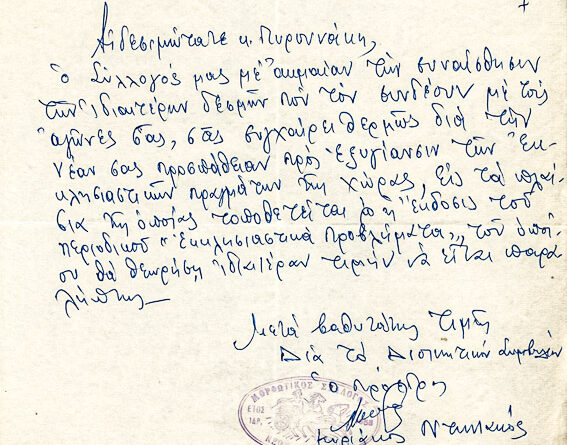 Αἰδεσιμώτατε κ. Πυρουνάκη,
ὁ Σύλλογός μας μέ ἀκμαίαν τήν συναίσθησιν
τῶν ἰδιαιτέρων δεσμῶν πού τόν συνδέουν μέ τούς
ἀγῶνες σας, σᾶς συγχαίρει θερμῶς διά τήν
νέαν σας προσπάθειαν πρός ἐξυγίανσιν τῶν Ἐκ-
κλησιαστικῶν πραγμάτων τῆς χώρας, εἰς τά πλαί-
σια τῆς ὁποίας τοποθετεῖται καί ἡ ἔκδοσις τοῦ
περιοδικοῦ "Ἐκκλησιαστικά Προβλήματα", τοῦ ὁποί-
ου θά θεωρήσῃ ἰδιαιτέραν τιμήν νά εἶναι παρα
λήπτης
Μετά βαθυτάτης τιμῆς
Διά τό Διοικητικόν Συμβούλιον
ὁ Πρόεδρος
ΜΟΡΦΩΤΙΚΟΣ ΣΥΛΛΟΓΟΣ
ΕΤΟΣ
ΙΔΡ.
Κυριάκος